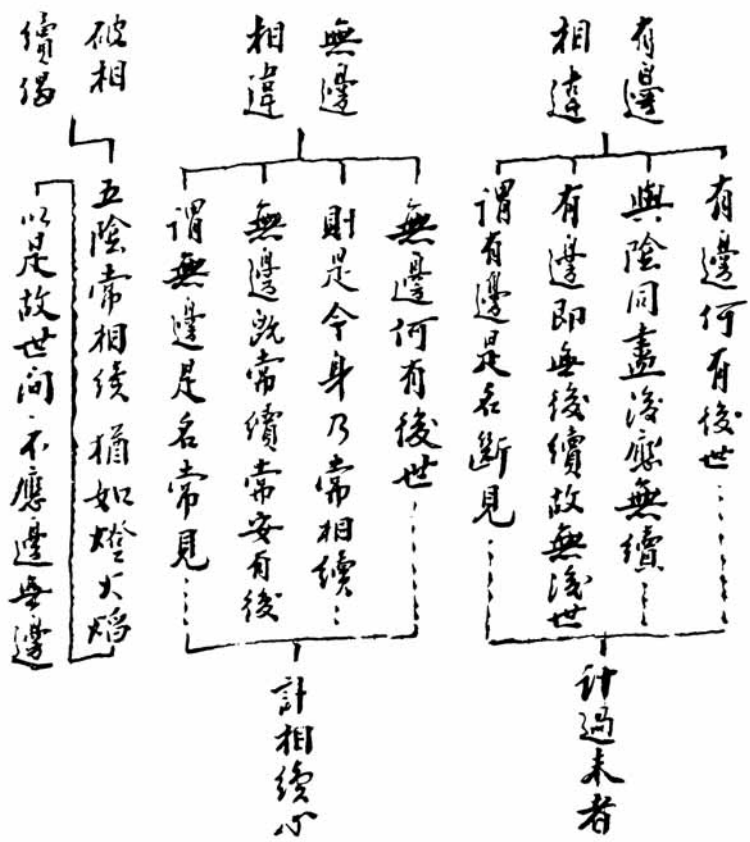 有邊
相違
有邊何有後世
與陰同盡後應無續
有邊即無後續故無後世
謂有邊是名斷見
計過未者
無邊
相違
無邊何有後世
則是今身乃常相續
無邊既常續常安有後
謂無邊是名常見
計相續心
破相
續偈
五陰常相續 猶如燈火焰
以是故世間·不應邊無邊